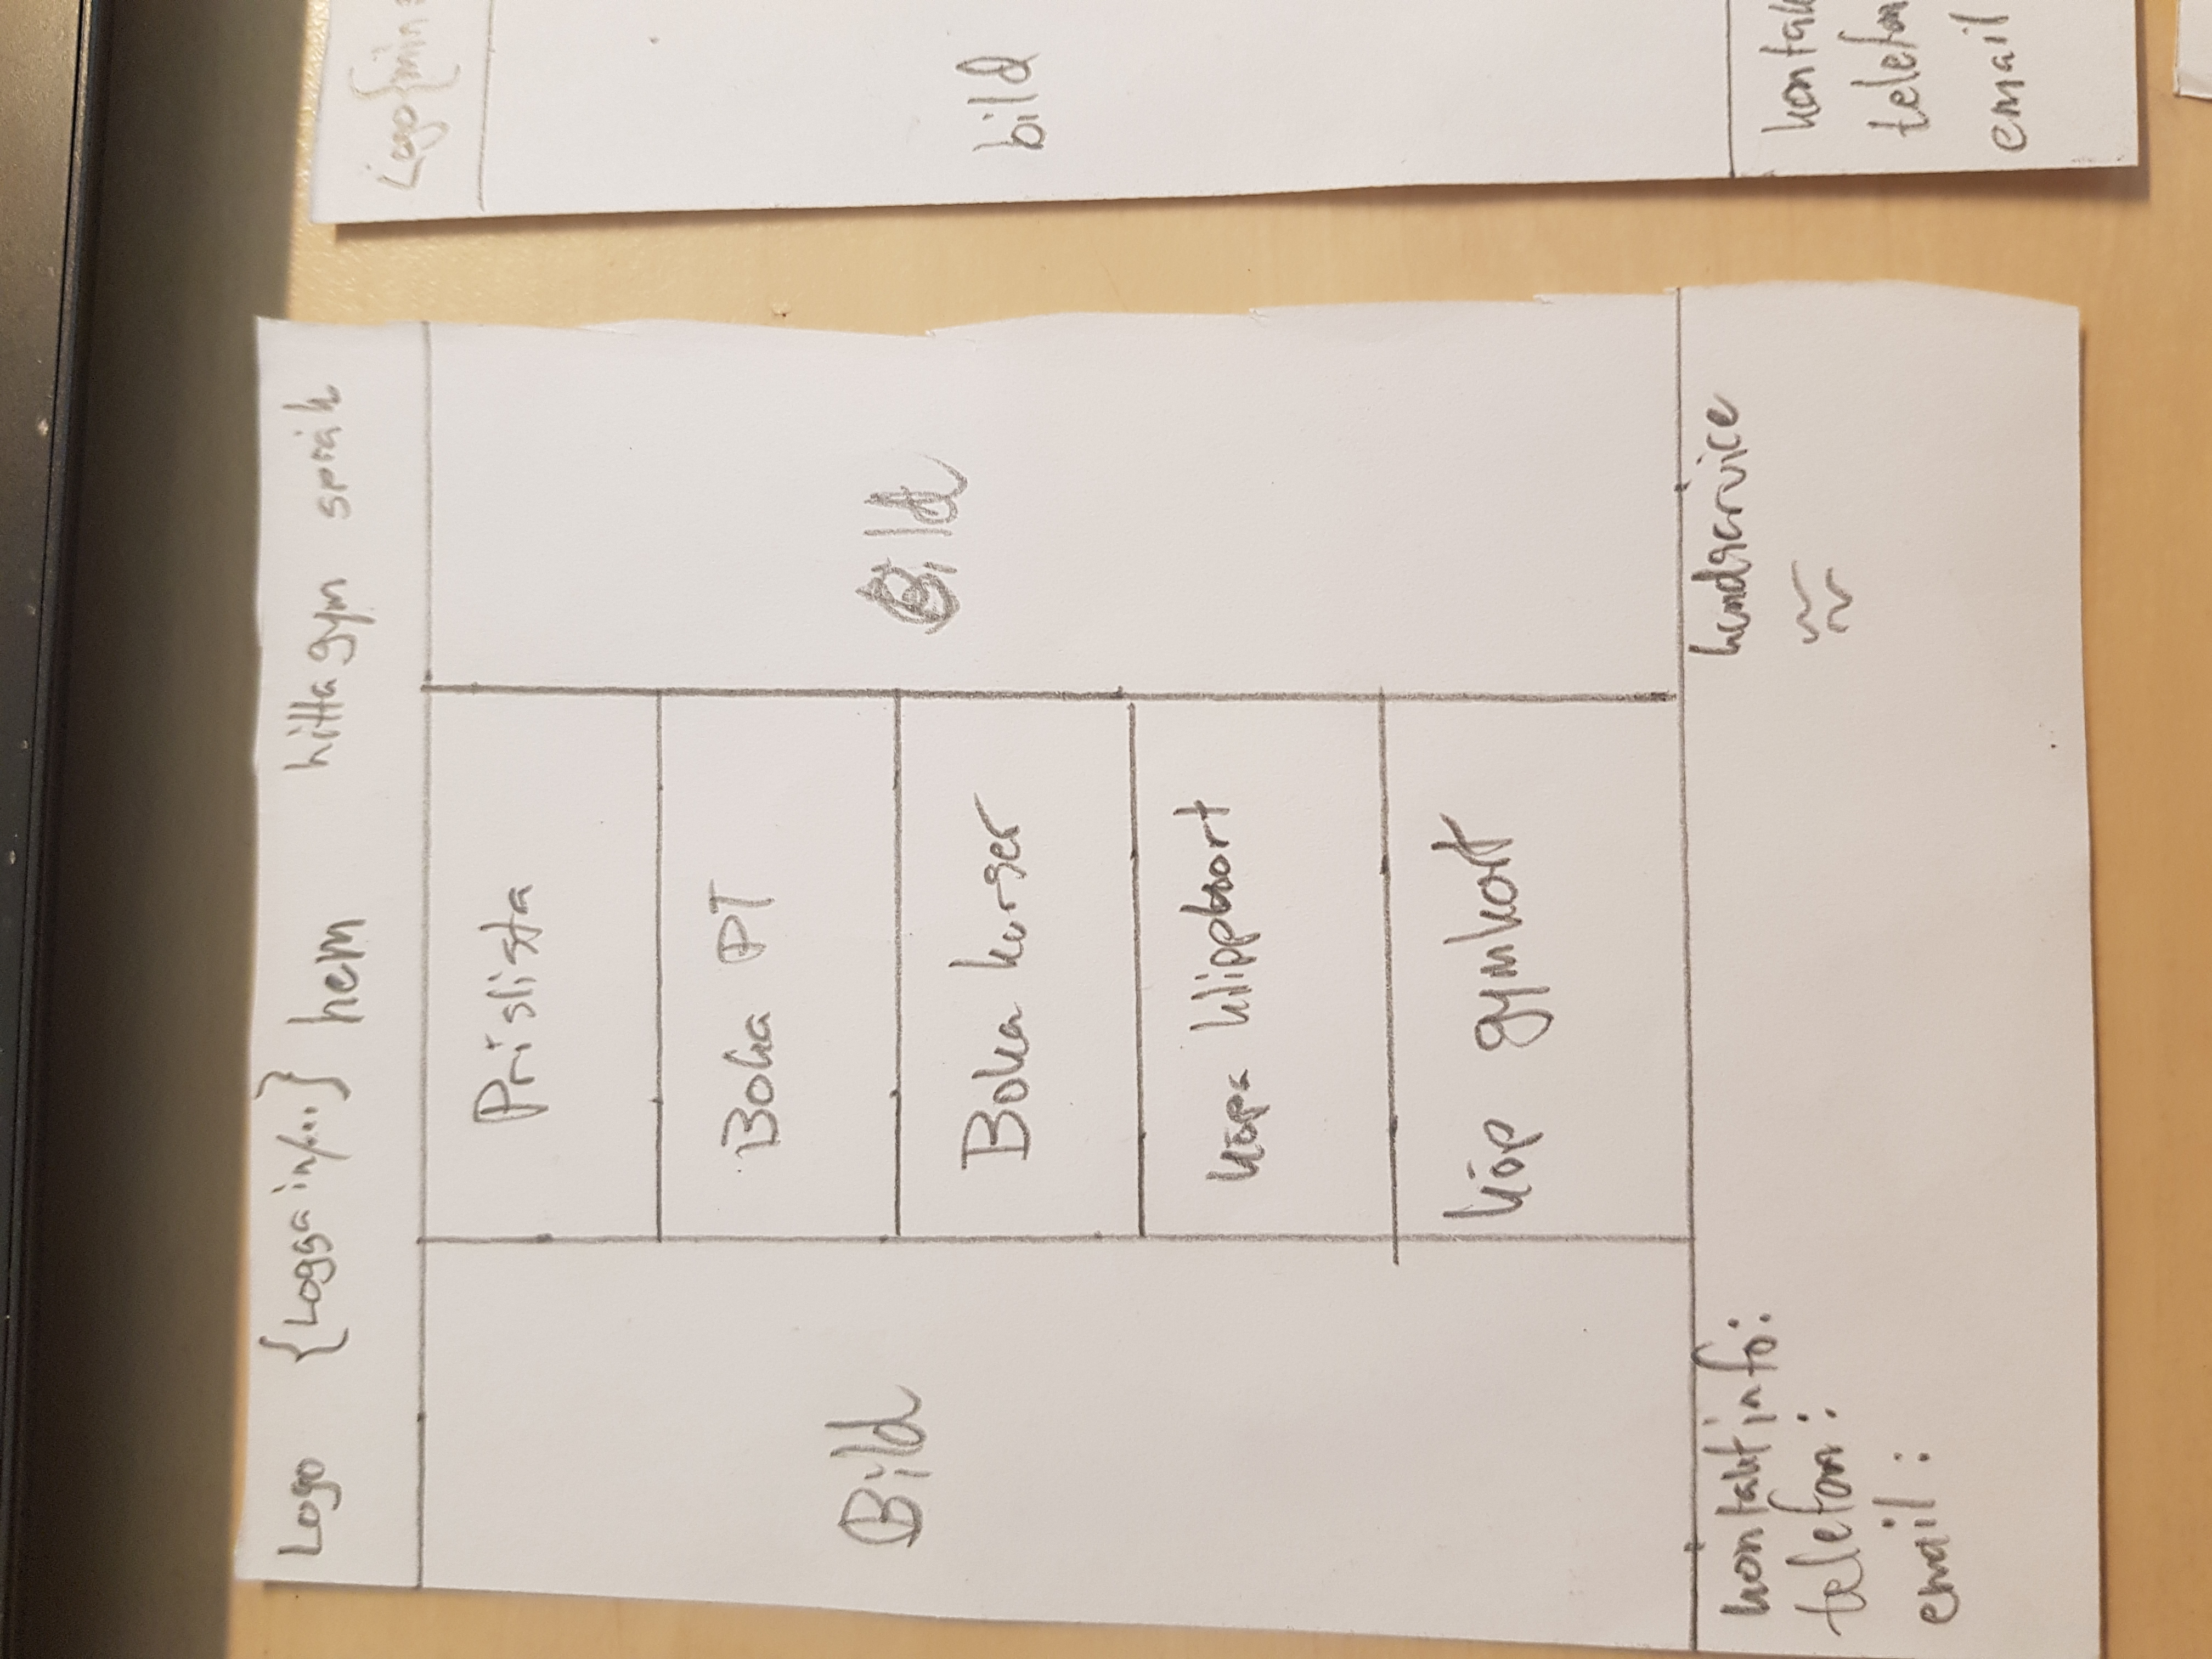 Logo {Logga in/ } hem hitta gym språk
Bild
Prislista
Boka PT
Boka kurser
köpa klippkort
köp gymkort
Bild
kontaktinfo:
telefon:
email:
kundservice
Logo {min
bild
kontak
telefon
email